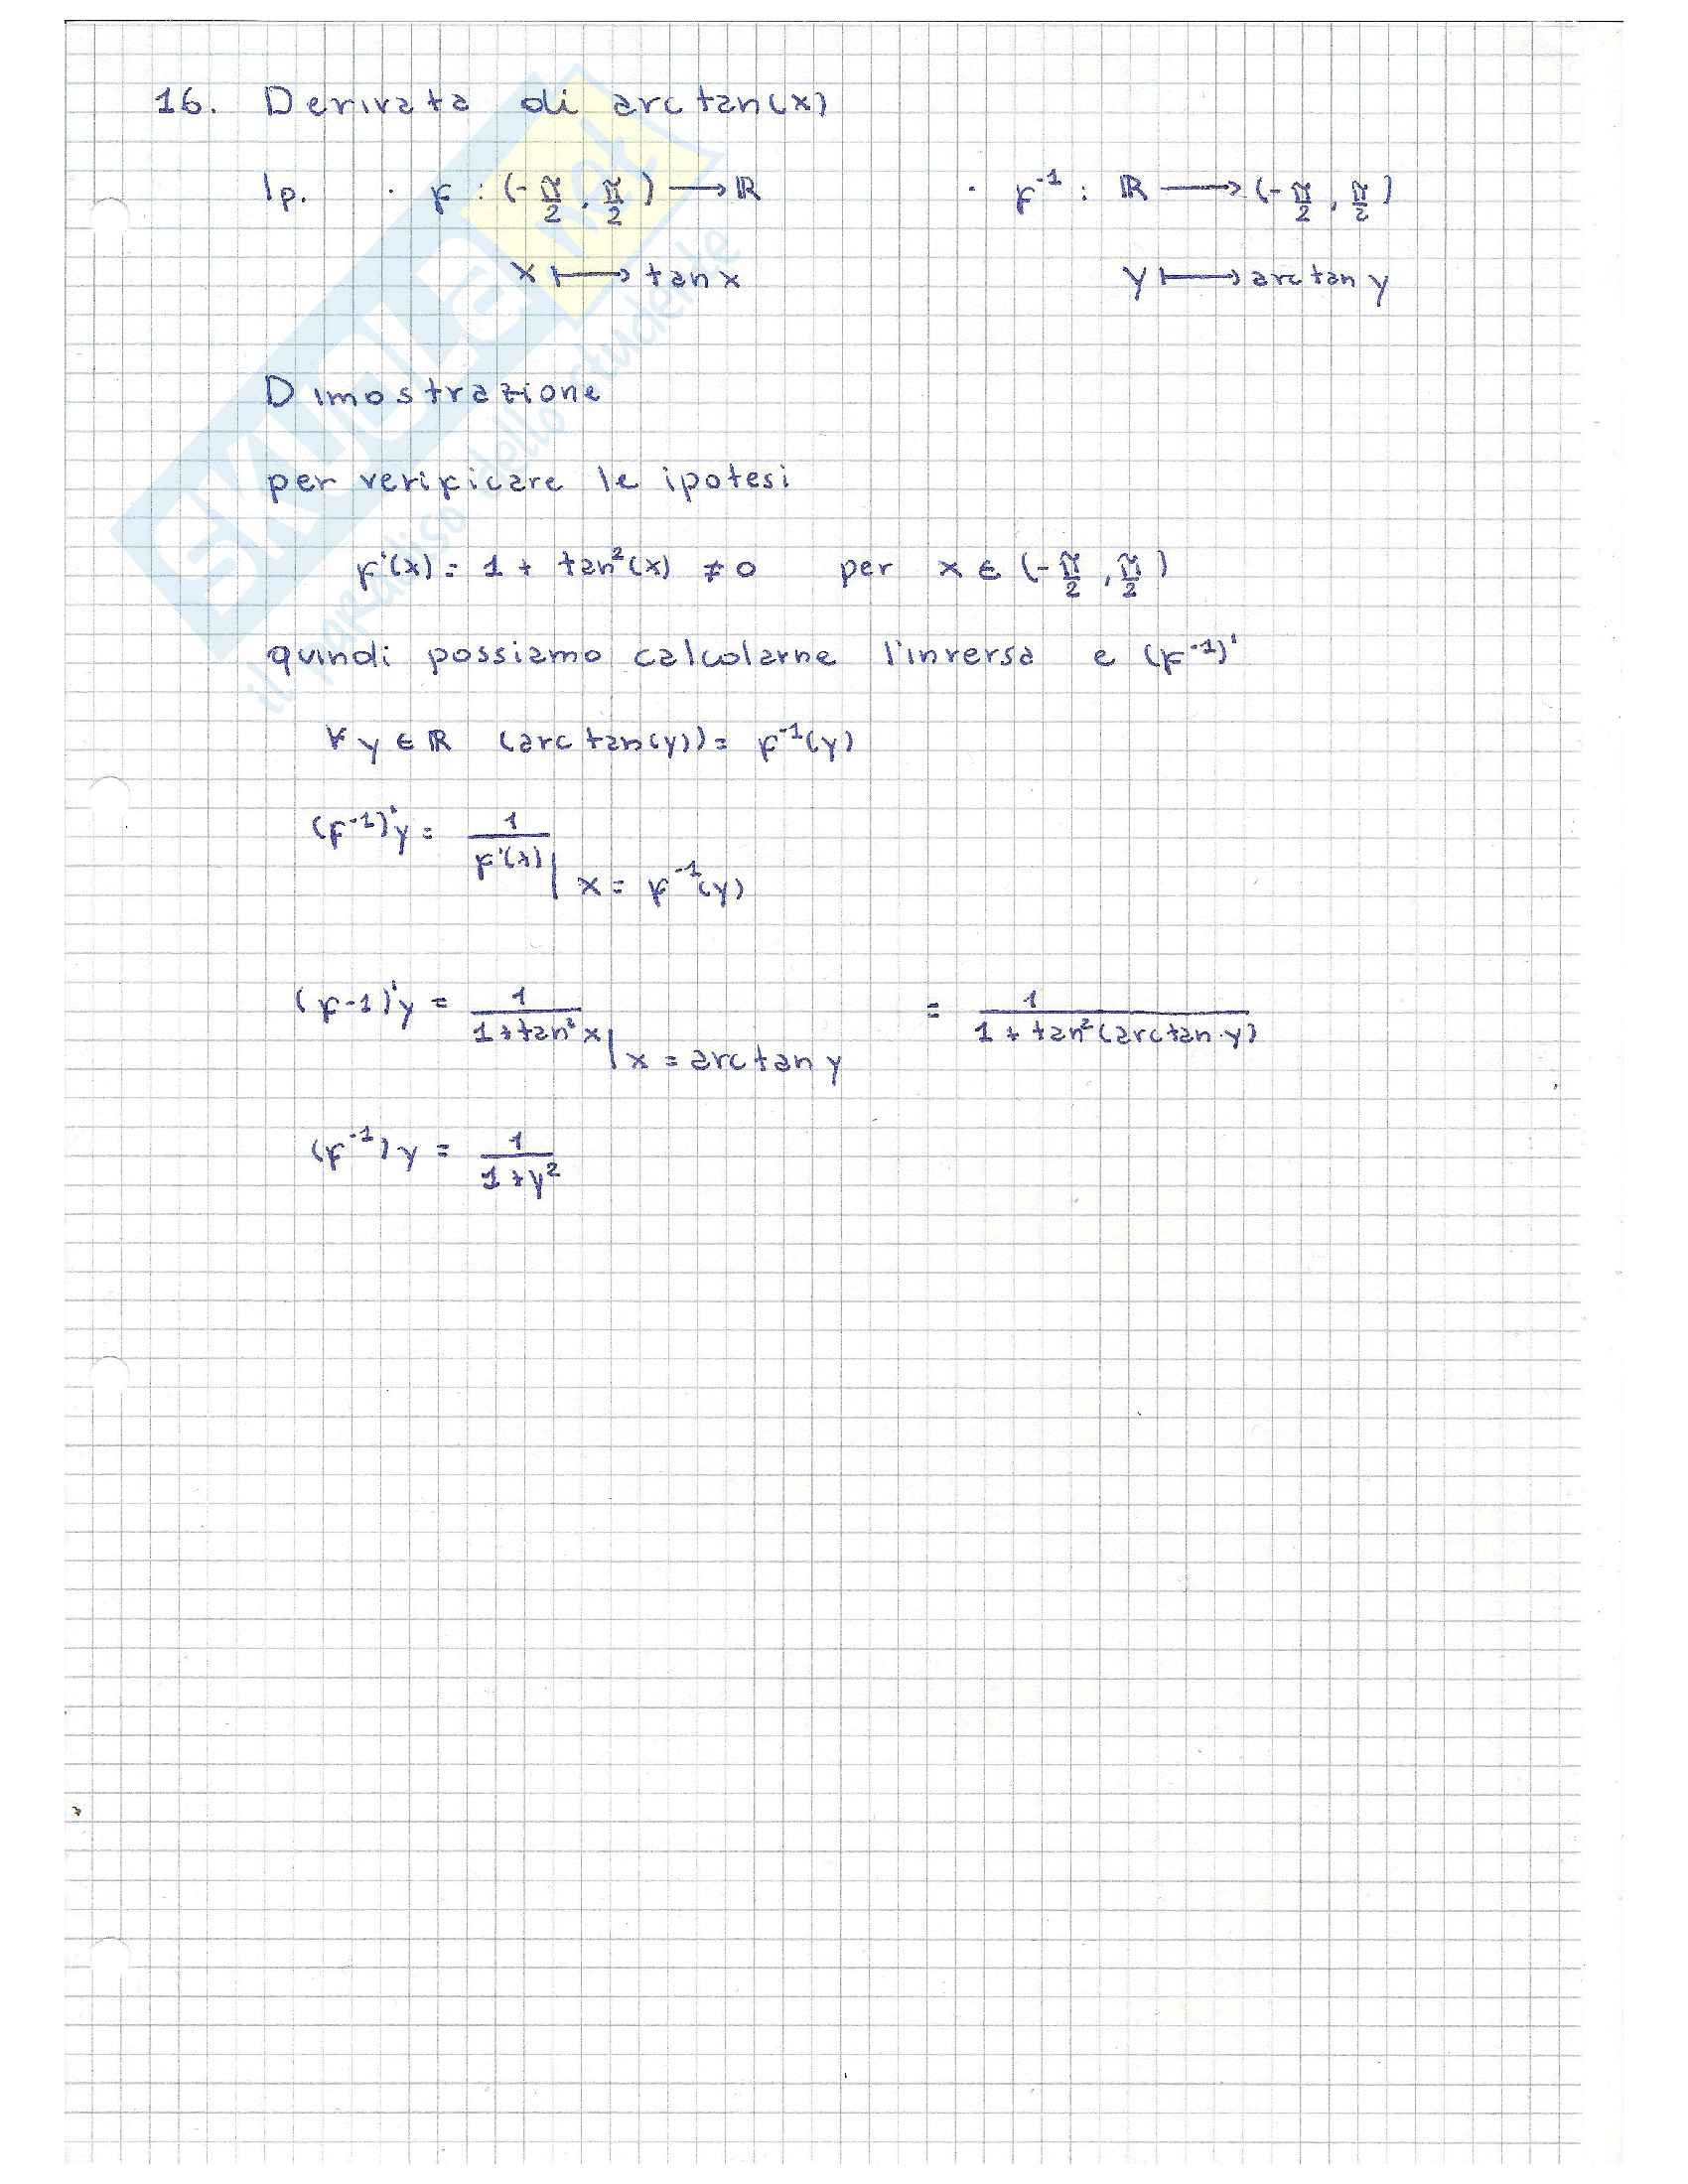 16. Derivata di arctan(x)
Ip. · f : (-π/2, π/2) ⟶ ℝ · f⁻¹ : ℝ ⟶ (-π/2, π/2)
x ⟼ tan x y ⟼ arctan y
Dimostrazione
per verificare le ipotesi
f'(x) = 1 + tan²(x) ≠ 0 per x ∈ (-π/2, π/2)
quindi possiamo calcolarne l'inversa e (f⁻¹)'
∀ y ∈ ℝ (arctan(y)) = f⁻¹(y)
(f⁻¹)'y = 1/f'(x) | x = f⁻¹(y)
(f-1)'y = 1/(1 + tan² x) | x = arctan y = 1/(1 + tan²(arctan y))
(f⁻¹) y = 1/(1 + y²)
SKUOLA.net
il paradiso dello studente